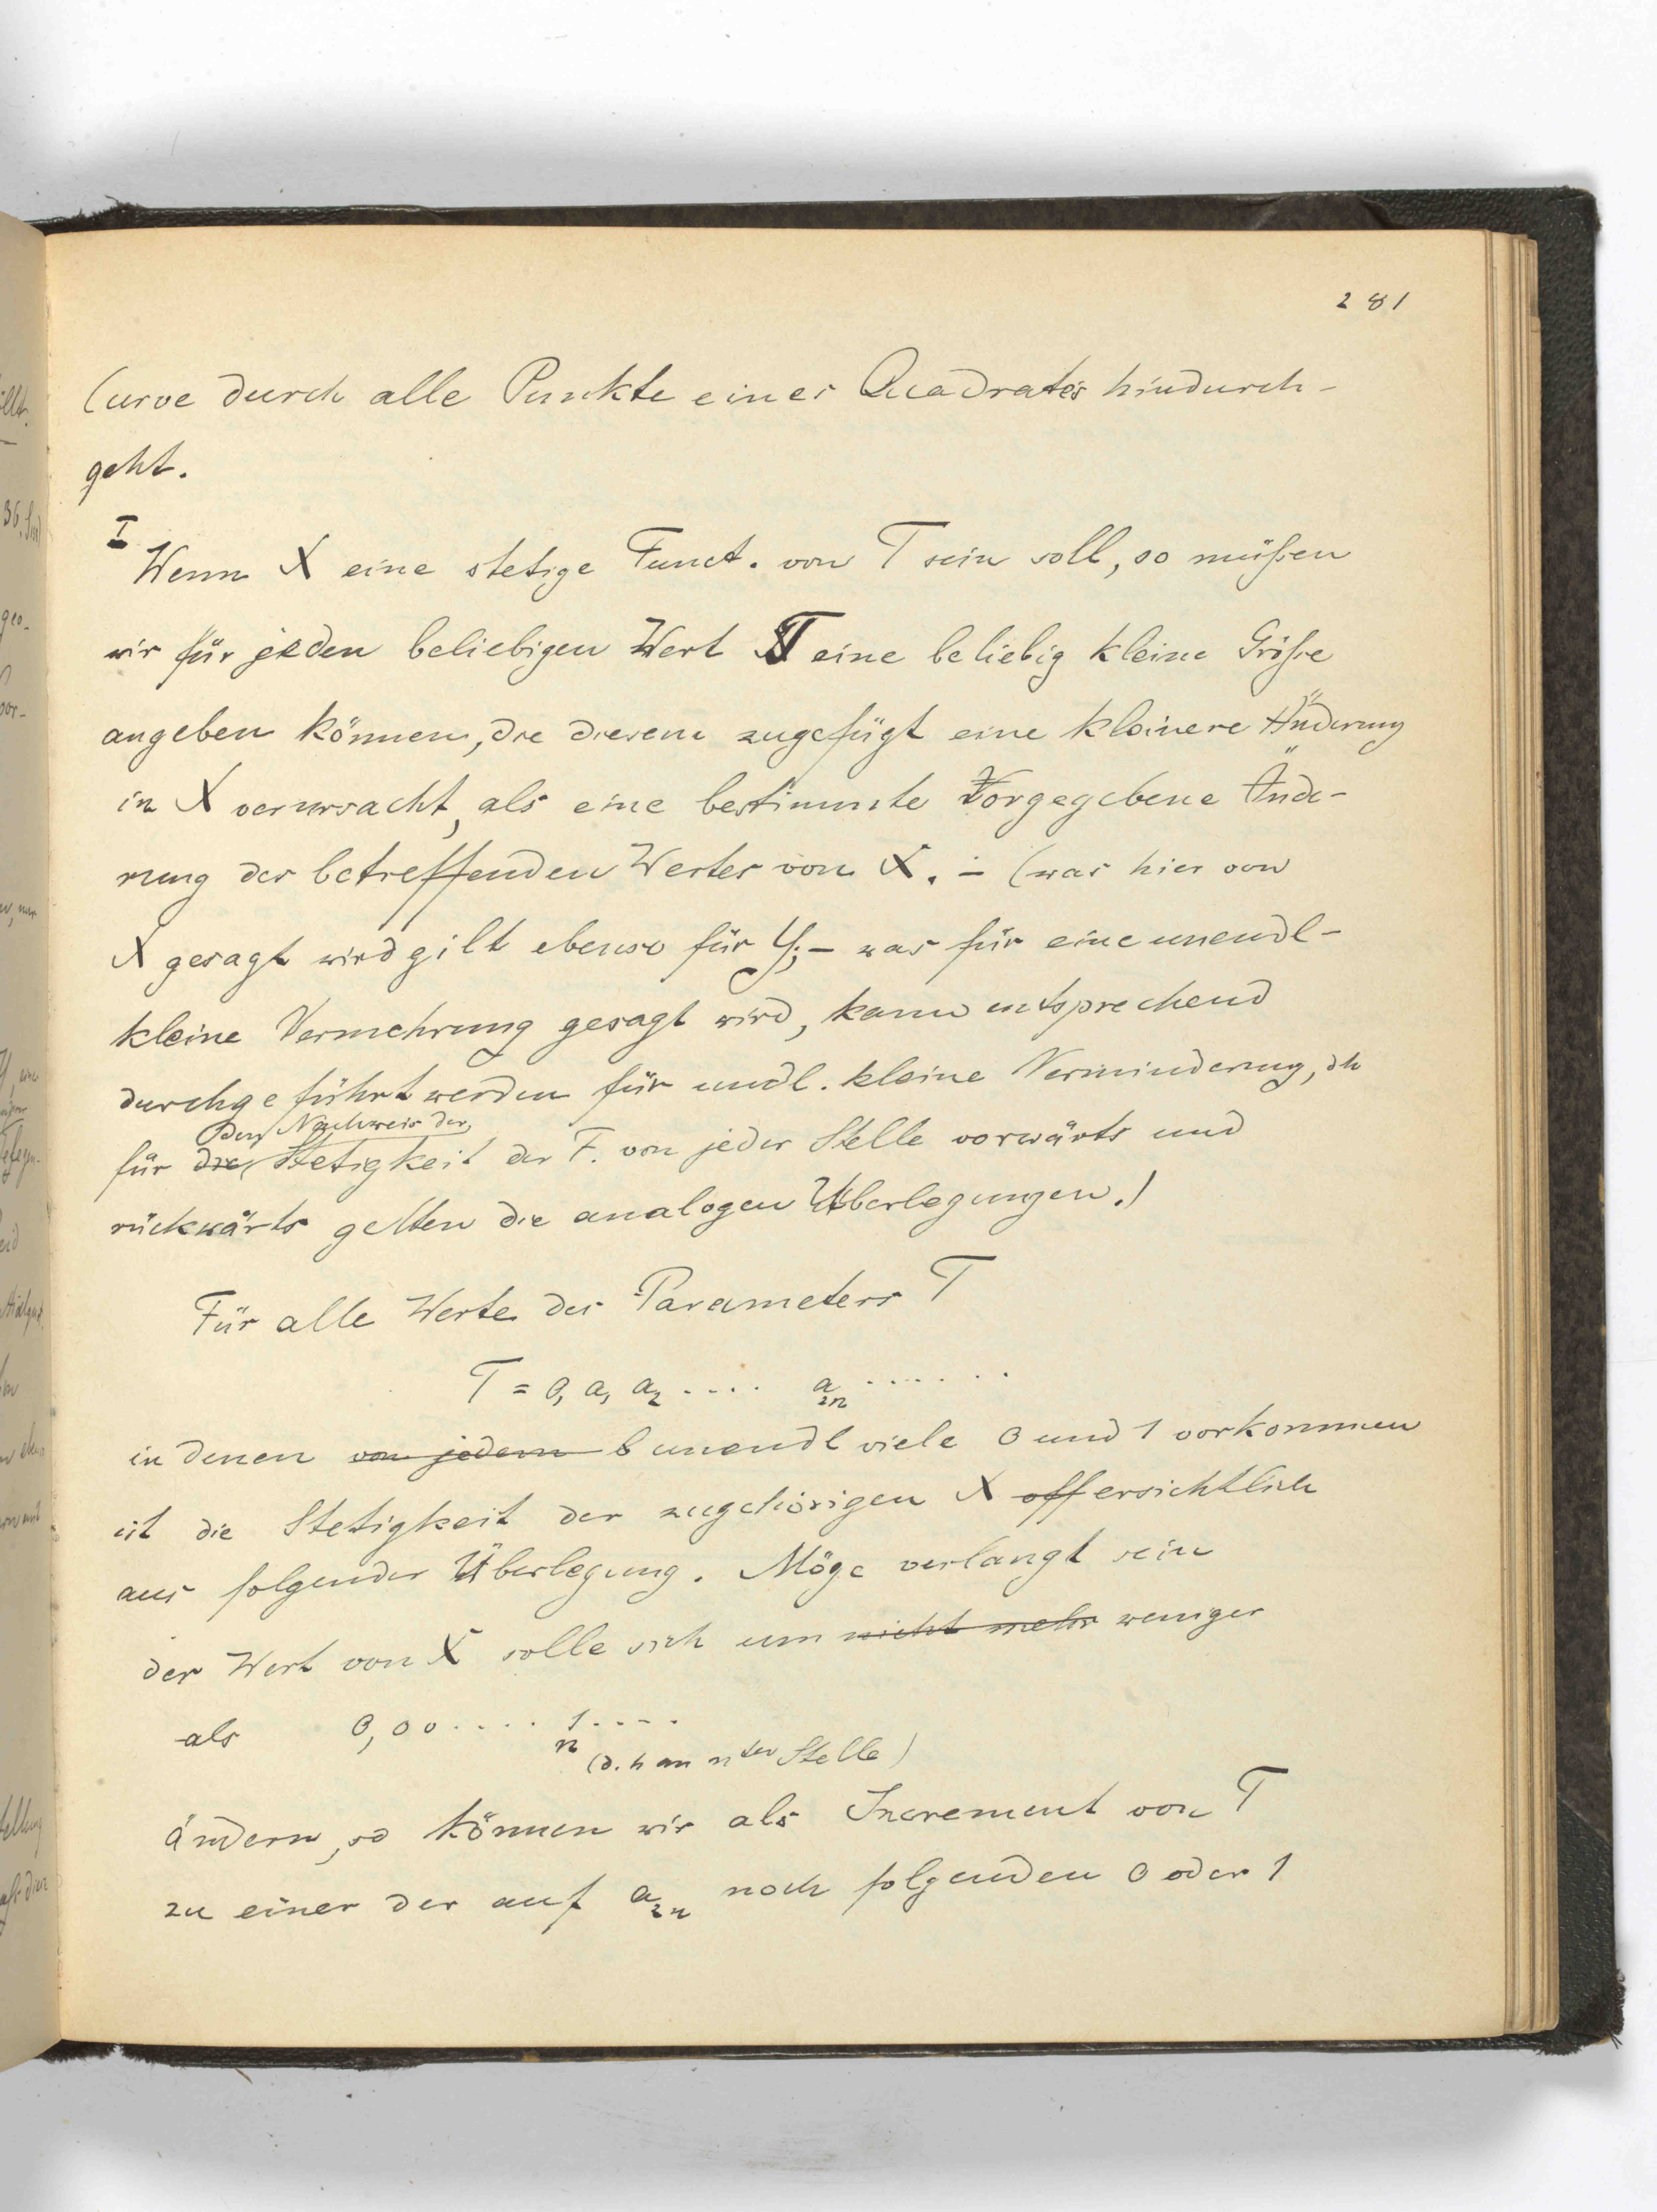 281
Curve durch alle Punkte eines Quadrates hindurch-
geht.
I
Wenn X eine stetige Funct. von T sein soll, so müßen
wir für jeden beliebigen Wert T eine beliebig kleine Größe
angeben können, die diesem zugefügt eine kleinere Änderung
in X verursacht, als eine bestimmte Vorgegebene Ände-
rung des betreffenden Wertes von X. – (was hier von
X gesagt wird gilt ebenso für Y; – was für eine unendl-
kleine Vermehrung gesagt wird, kann entsprechend
durchgeführt werden für undl. kleine Verminderung, dh
den Nachweis der
für die Stetigkeit der F. von jeder Stelle vorwärts und
rückwärts gelten die analogen Überlegungen.)
Für alle Werte des Parameters T
T = 0, a₁ a₂ .... a₂ₙ .......
in denen von jedem unendl viele 0 und 1 vorkommen
ist die Stetigkeit der zugehörigen X off ersichtlich
aus folgender Überlegung. Möge verlangt sein
der Wert von X solle sich um nicht mehr weniger
als 0,00..... 1....
n (d. h an nter Stelle)
ändern, so können wir als Increment von T
zu einer der auf a₂ₙ noch folgenden 0 oder 1